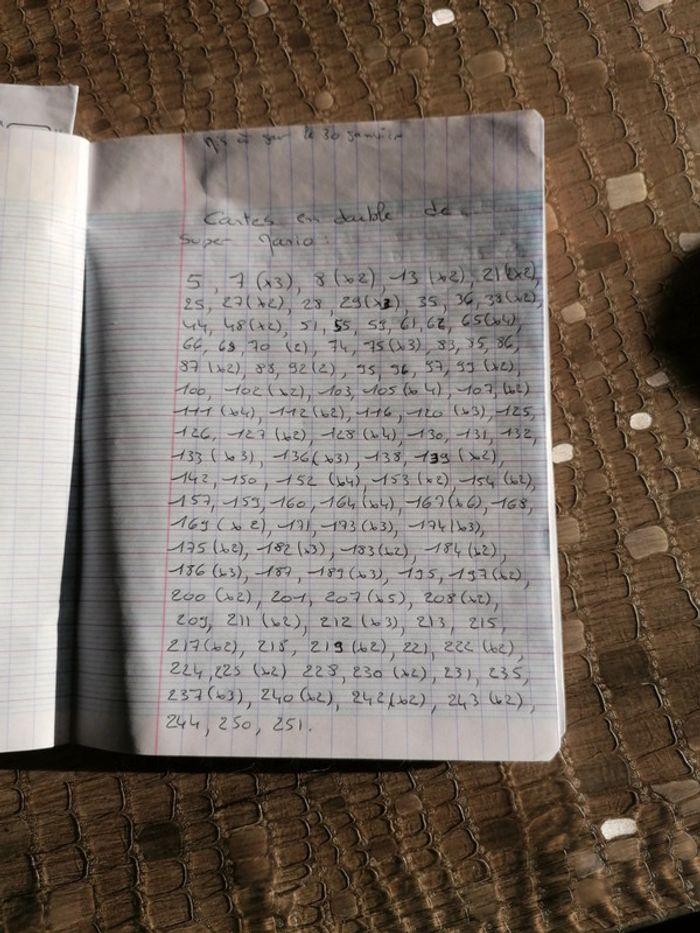 Mis à jour le 30 janvier
Cartes en double de
super Mario:
5, 7 (x3), 8 (x2), 13 (x2), 21 (x2),
25, 27 (x2), 28, 29 (x3), 35, 36, 38 (x2),
44, 48 (x2), 51, 55, 59, 61, 62, 65 (x4),
66, 69, 70 (2), 74, 75 (x3), 83, 85, 86,
87 (x2), 88, 92 (2), 95, 96, 97, 99 (x2),
100, 102 (x2), 103, 105 (x4), 107, (x2)
111 (x4), 112 (x2), 116, 120 (x3), 125,
126, 127 (x2), 128 (x4), 130, 131, 132,
133 (x3), 136 (x3), 138, 139 (x2),
142, 150, 152 (x4), 153 (x2), 154 (x2),
157, 159, 160, 164 (x4), 167 (x6), 168,
169 (x2), 171, 173 (x3), 174 (x3),
175 (x2), 182 (x3), 183 (x2), 184 (x2),
186 (x3), 187, 189 (x3), 195, 197 (x2),
200 (x2), 201, 207 (x5), 208 (x2),
209, 211 (x2), 212 (x3), 213, 215,
217 (x2), 218, 219 (x2), 221, 222 (x2),
224, 225 (x2) 228, 230 (x2), 231, 235,
237 (x3), 240 (x2), 242, (x2), 243 (x2),
244, 250, 251.